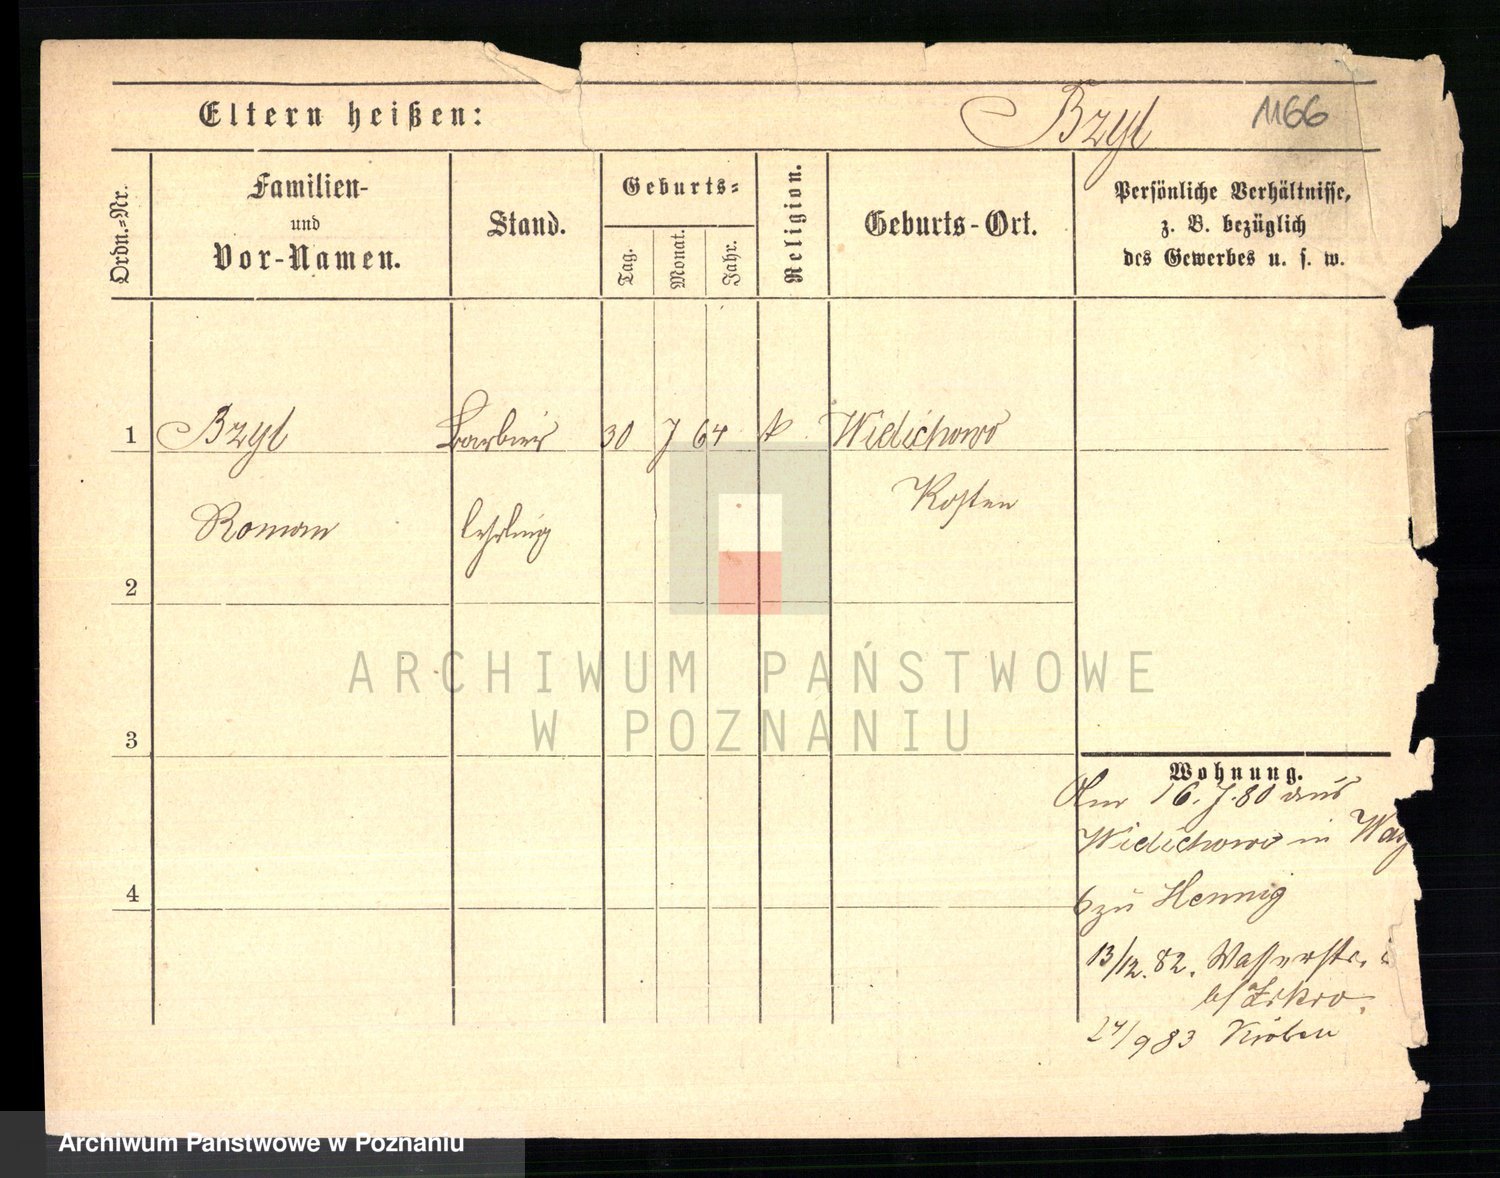 Eltern heißen: Bzyl 1166
Ordn.=Nr.
Familien-
und
Vor-Namen.
Stand.
Geburts=
Tag.
Monat.
Jahr.
Religion.
Geburts-Ort.
Persönliche Verhältnisse,
z. B. bezüglich
des Gewerbes u. s. w.
1 Bzyl Barbier 30 7 64 k Wielichowo
Kosten
Roman lehrling
2
3
4
Wohnung.
Am 16. 7. 80 aus
Wielichowo in Was
6 zu Hennig
13/12. 82. Wasserstr.
b/
24/9 83 Kröben
ARCHIWUM PAŃSTWOWE
W POZNANIU
Archiwum Państwowe w Poznaniu